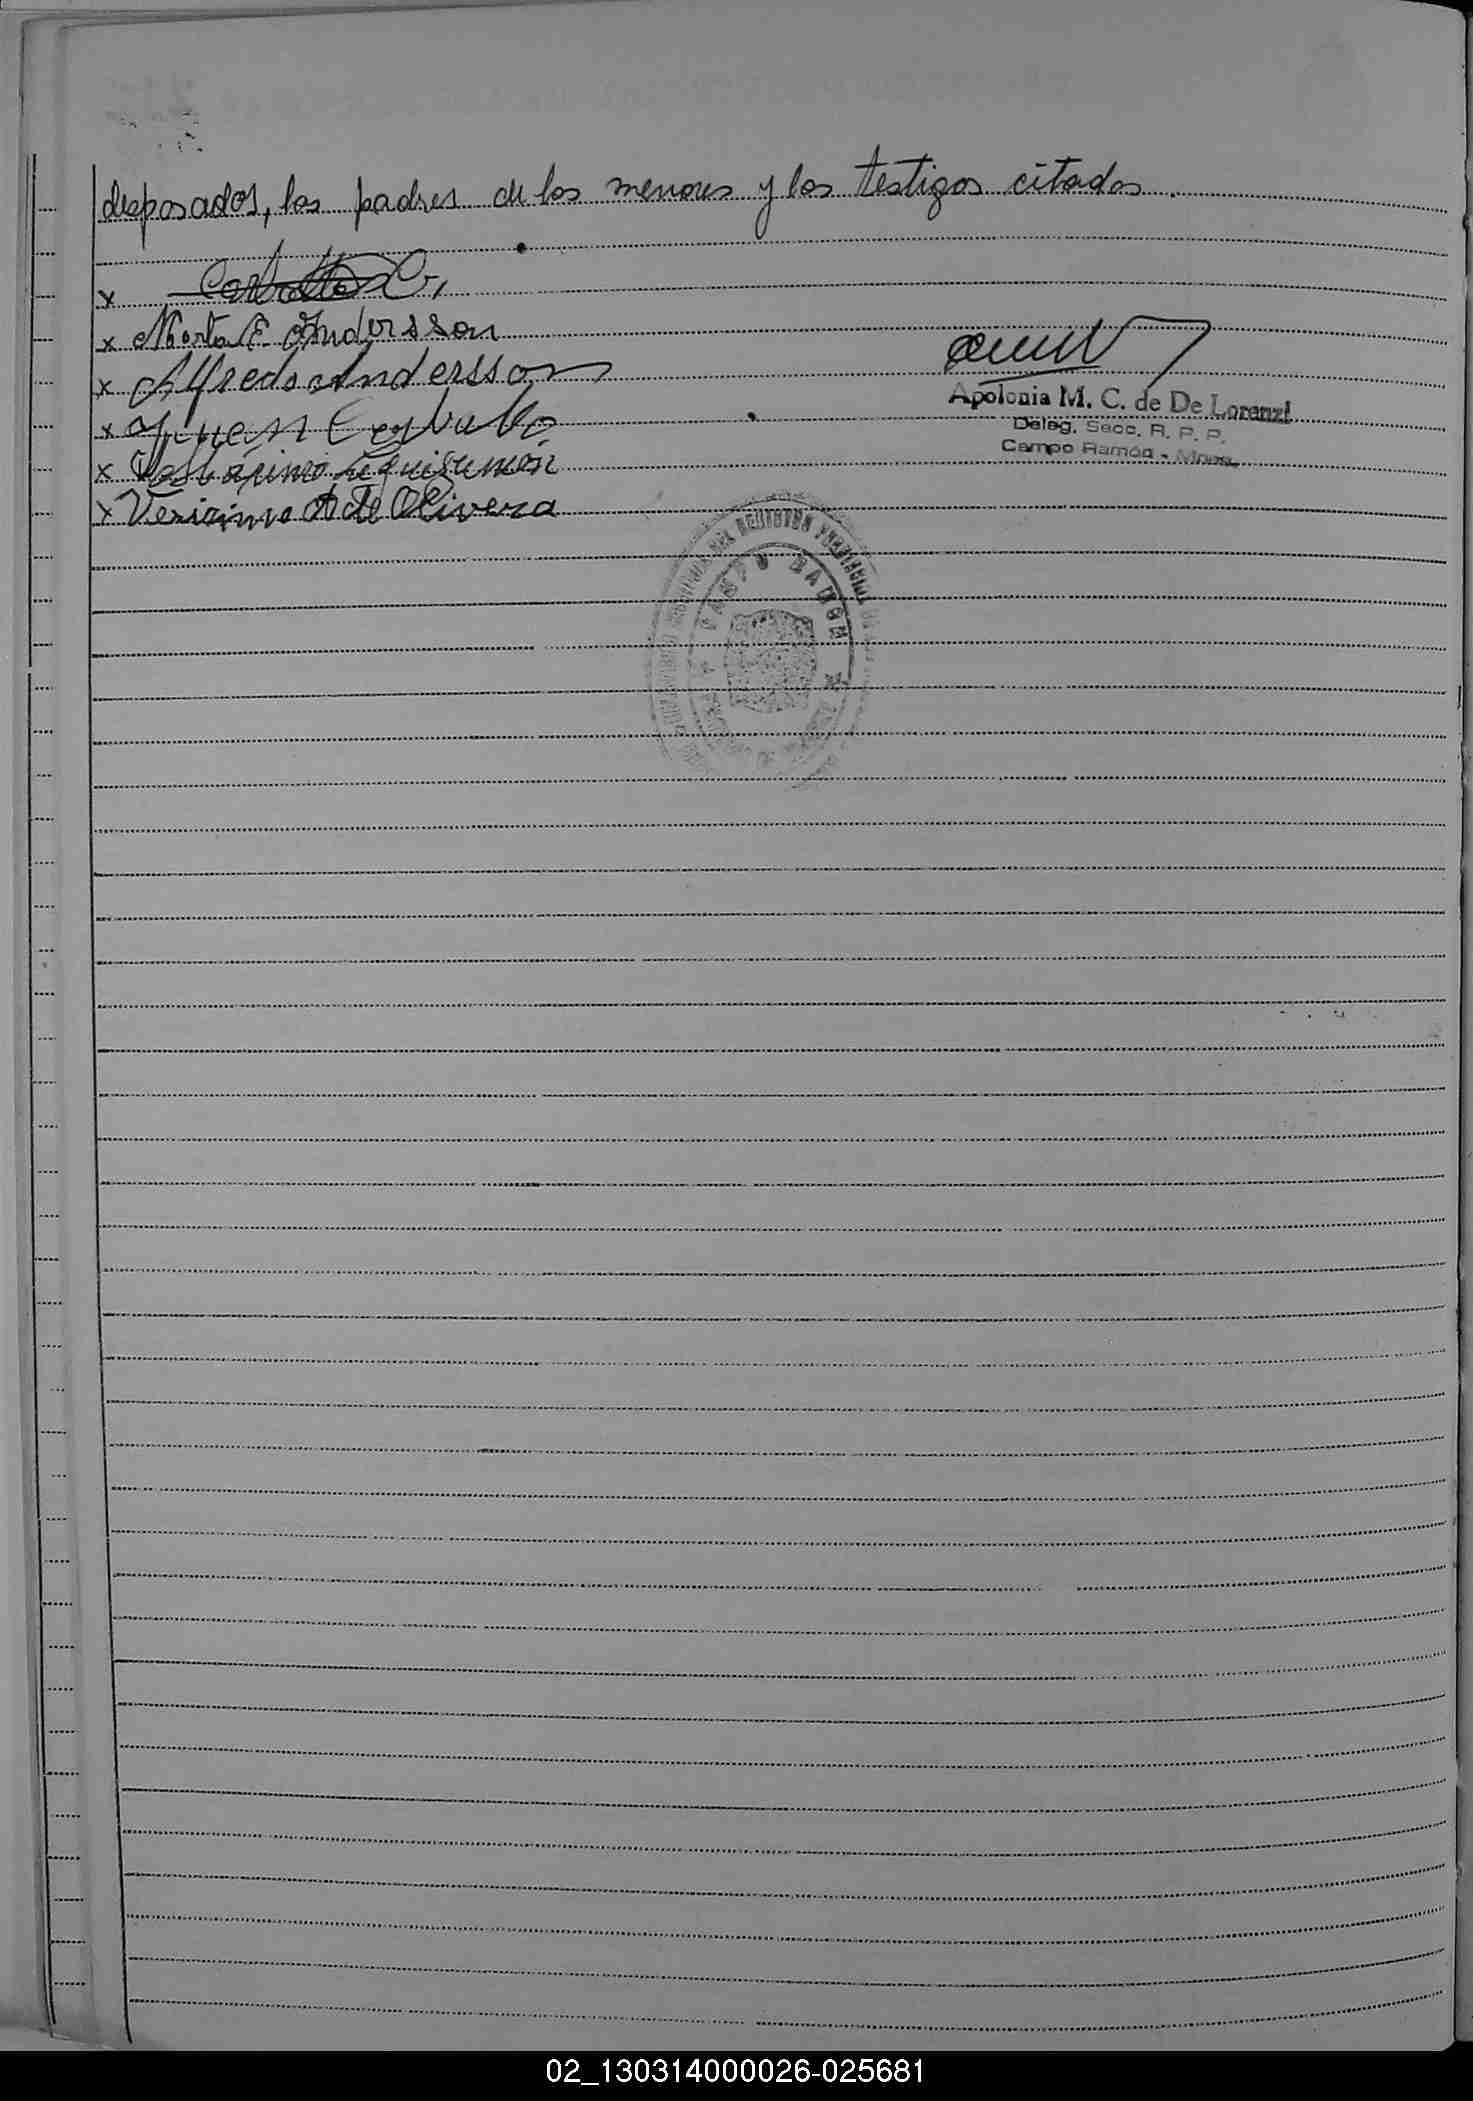 desposados, los padres de los menores y los testigos citados.
x
x Marta E. Andersson
x Alfredo Andersson
x Juan Carvallo
x
x Verisimo A de Olivera
Apolonia M. C. de De Lorenzi
Deleg. Secc. R. P. P.
Campo Ramón - Mnes.
CAMPO RAMON
02_130314000026-025681